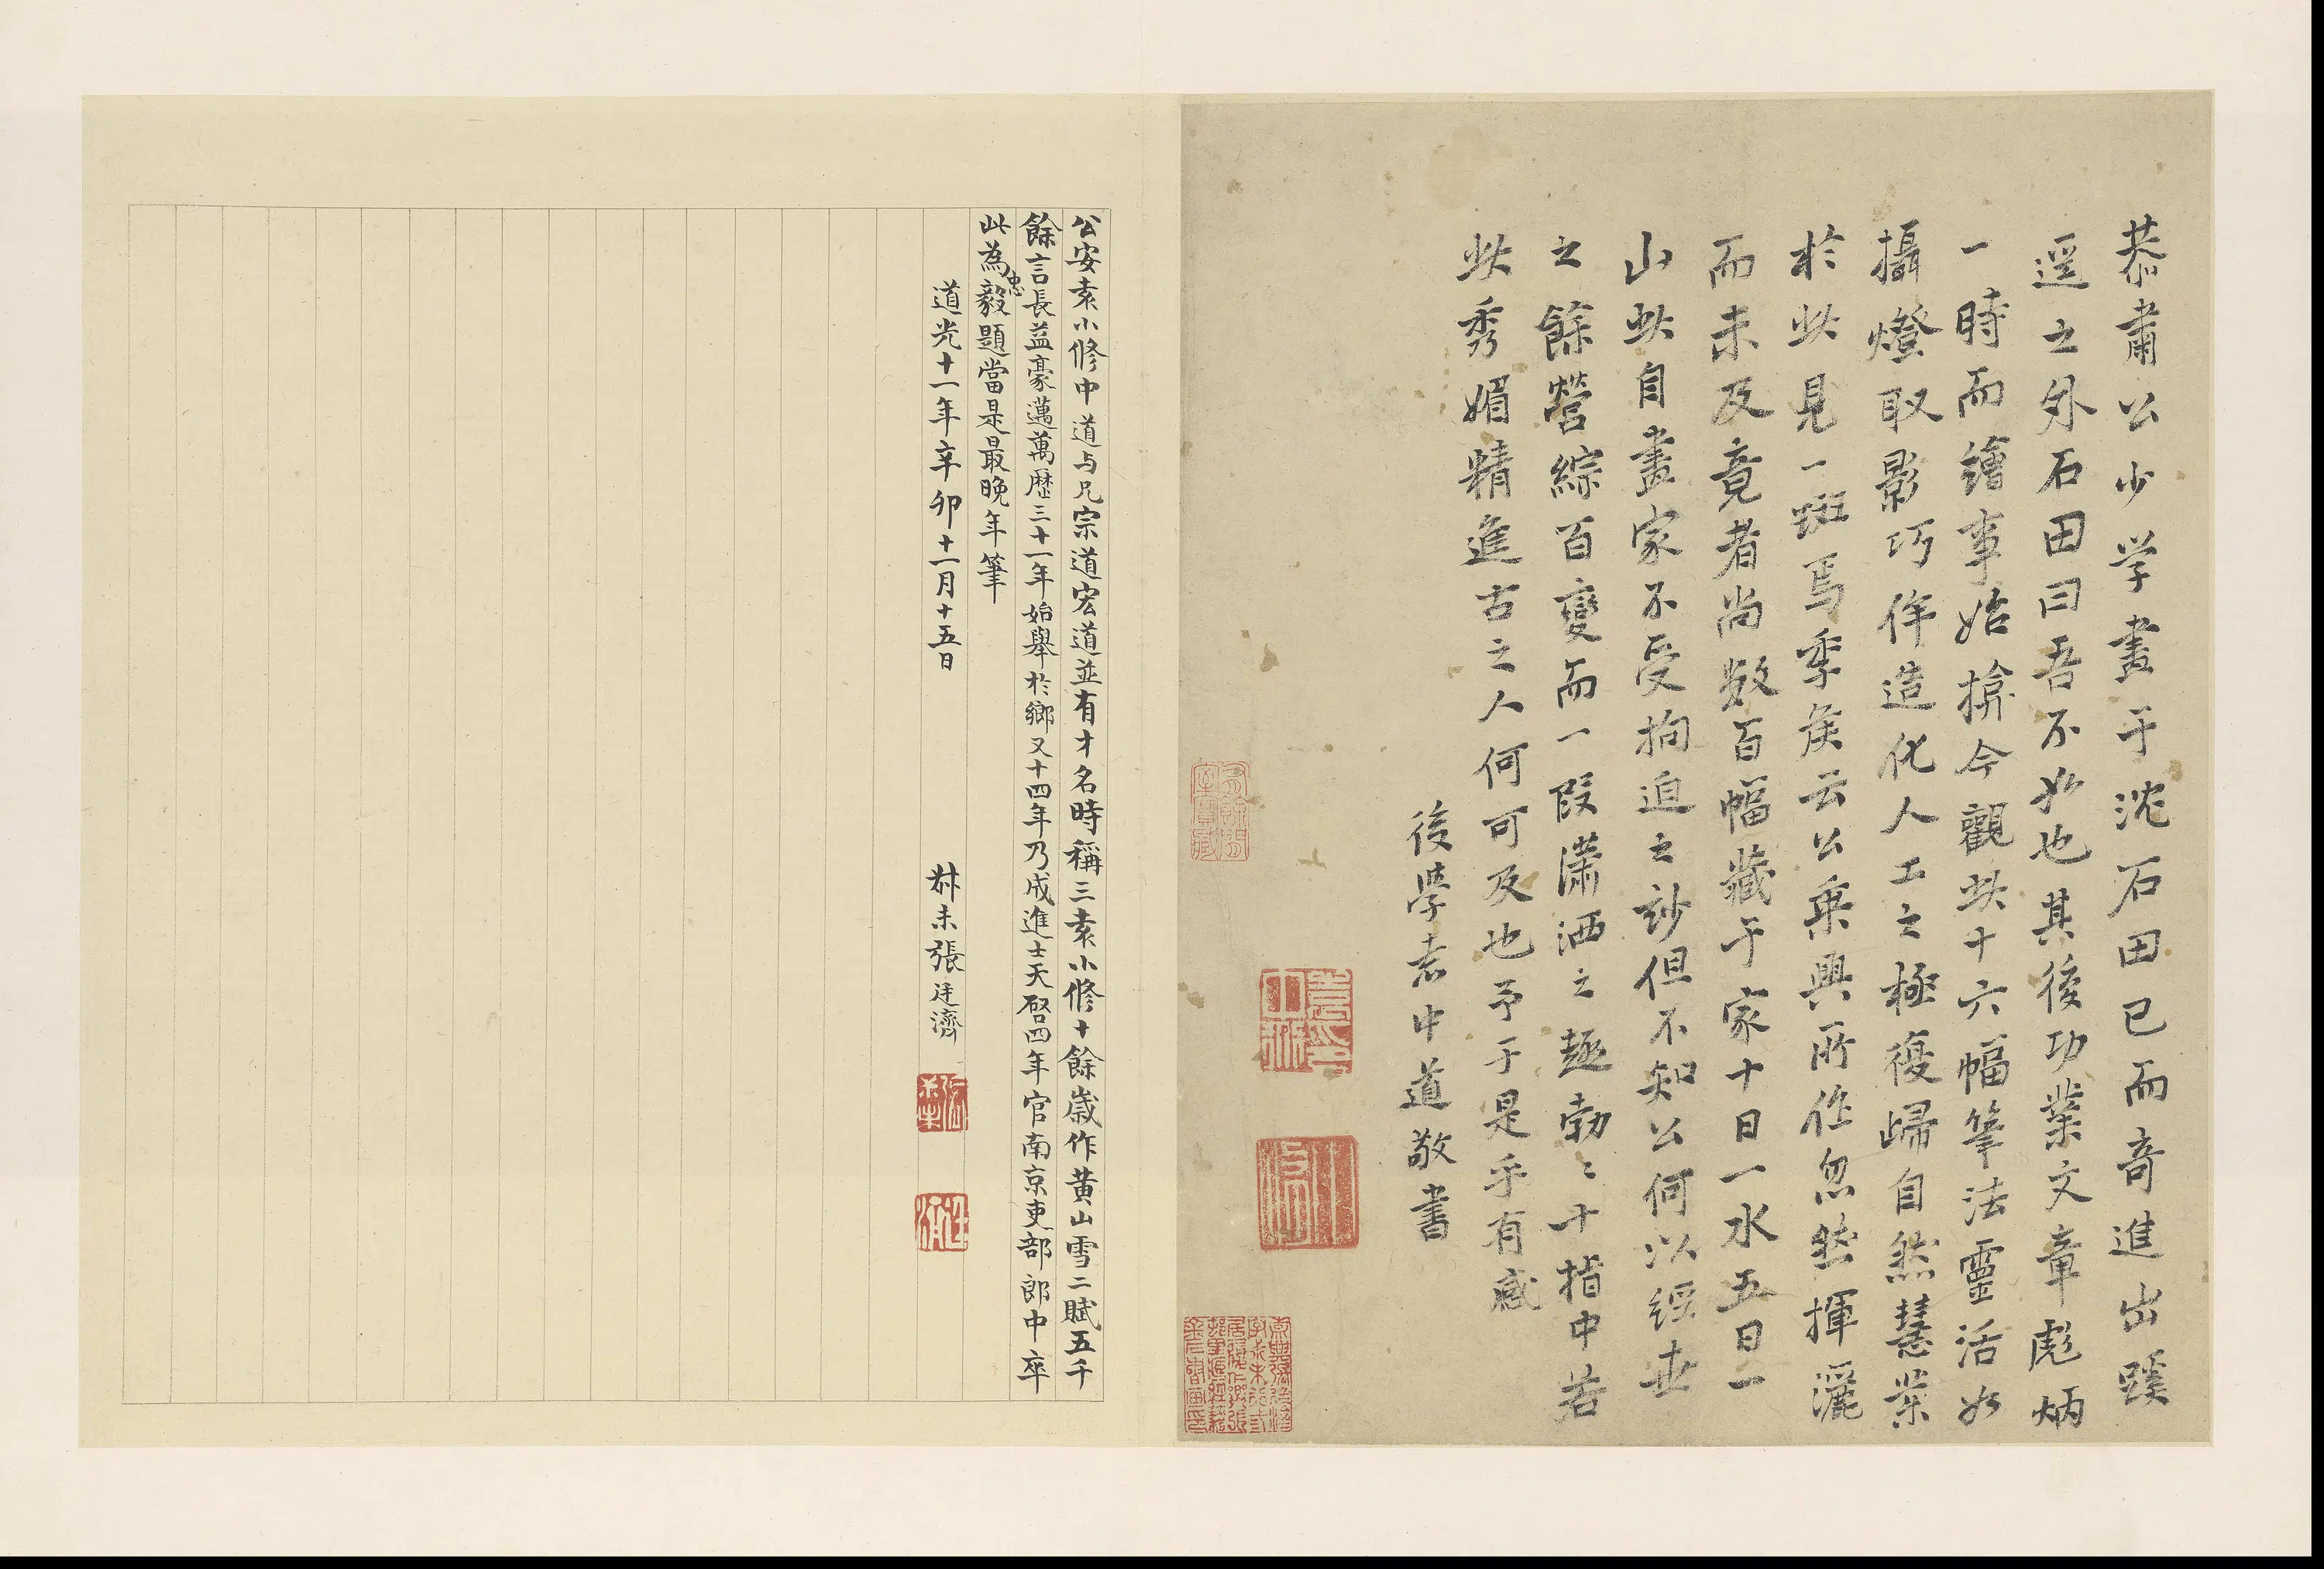 恭肅公少学畫于沈石田已而奇進出蹊
逕之外石田曰吾不如也其後功業文章彪炳
一時而繪事始揜今觀此十六幅筆法靈活如
攝燈取影巧侔造化人工之極復歸自然慧業
於此見一斑焉季侯云公乘興所作忽然揮灑
而未及竟者尚數百幅藏于家十日一水五日一
山此自畫家不受拘迫之妙但不知公何以經世
之餘營綜百變而一段瀟洒之趣勃〻十指中若
此秀媚精進古之人何可及也予于是乎有感
後學袁中道敬書
公安袁小修中道与兄宗道宏道並有才名時稱三袁小修十餘歲作黄山雪二賦五千
餘言長益豪邁萬歷三十一年始舉於鄉又十四年乃成進士天啓四年官南京吏部郎中卒
此為忠毅題當是最晚年筆
道光十一年辛卯十一月十五日
叔未張廷濟